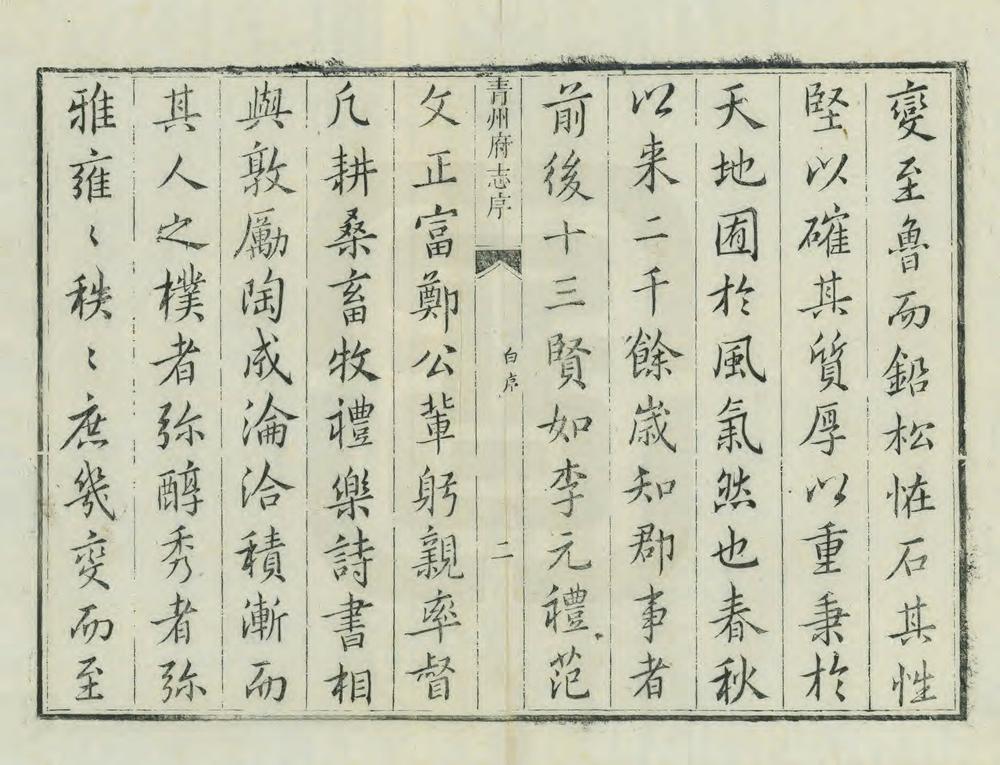 變至魯而鉛松恠石其性
堅以確其質厚以重秉於
天地囿於風氣然也春秋
以来二千餘歲知郡事者
前後十三賢如李元禮范
青州府志序
白序
二
文正富鄭公輩躬親率督
凡耕桑畜牧禮樂詩書相
與敦勵陶成淪洽積漸而
其人之樸者弥醇秀者弥
雅雍〻秩〻庶幾变而至